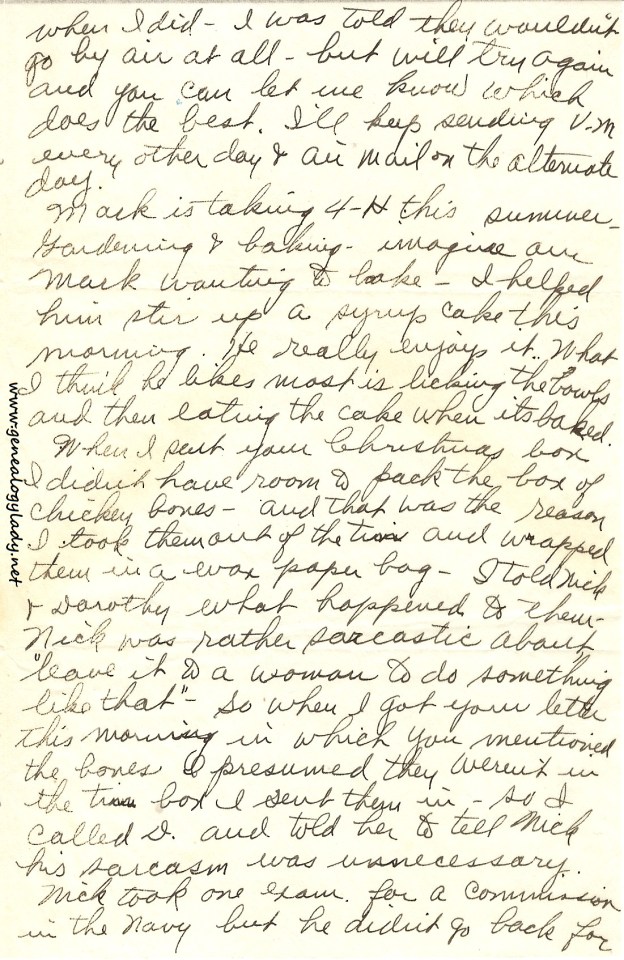 when I did - I was told they wouldn't
go by air at all - but will try again
and you can let me know which
does the best. I'll keep sending V-M
every other day & air mail on the alternate
day.
Mark is taking 4-H this summer -
Gardening & baking - imagine our
Mark wanting to bake - I helped
him stir up a syrup cake this
morning. He really enjoys it. What
I think he likes most is licking the bowls
and then eating the cake when its baked.
When I sent your Christmas box
I didn't have room to pack the box of
chickey bones - and that was the reason
I took them out of the tin and wrapped
them in a wax paper bag - I told Nick
& Dorothy what happened to them -
Nick was rather sarcastic about
"leave it to a woman to do something
like that" - So when I got your letter
this morning in which you mentioned
the bones I presumed they weren't in
the tin box I sent them in - so I
called D. and told her to tell Nick
his sarcasm was unnecessary.
Nick took one exam. for a commission
in the Navy but he didn't go back for
www.genealogylady.net